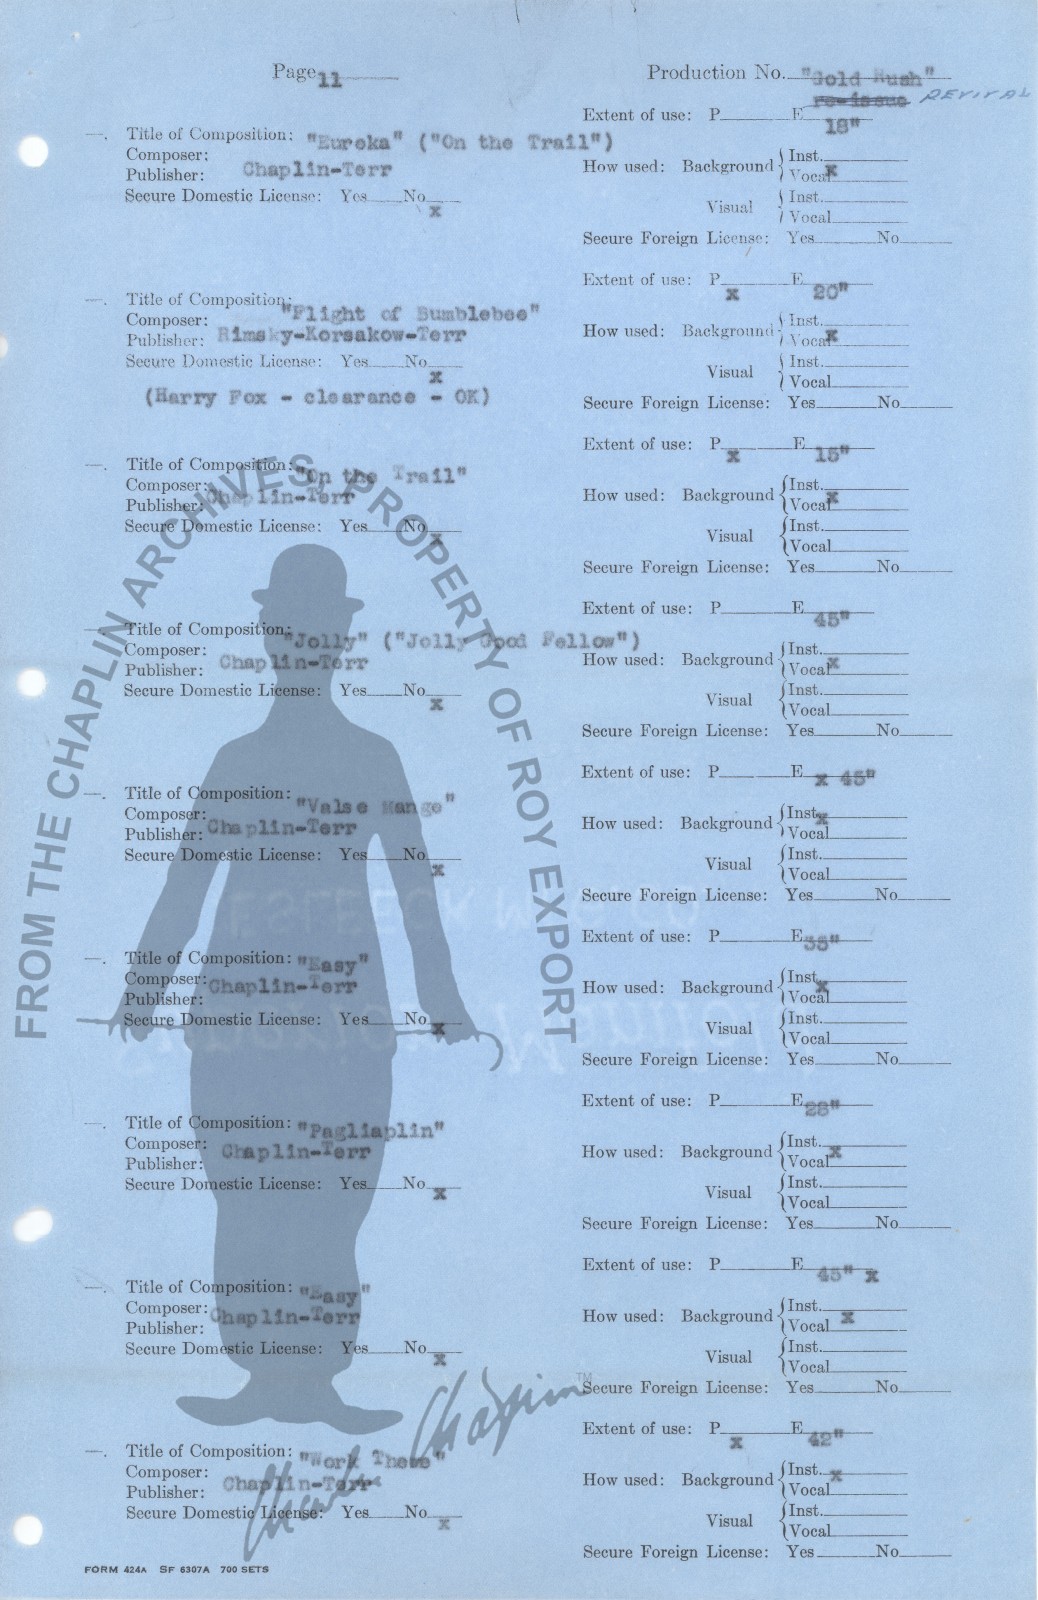 Page 11
Production No. "Gold Rush"
re-issue REVIVAL
Title of Composition: "Eureka" ("On the Trail")
Composer:
Publisher: Chaplin-Terr
Secure Domestic License: Yes No x
Extent of use: P E 18"
How used: Background Inst.
Vocal x
Visual Inst.
Vocal
Secure Foreign License: Yes No
Title of Composition: "Flight of Bumblebee"
Composer:
Publisher: Rimsky-Korsakow-Terr
Secure Domestic License: Yes No x
(Harry Fox - clearance - OK)
Extent of use: P x E 20"
How used: Background Inst.
Vocal x
Visual Inst.
Vocal
Secure Foreign License: Yes No
Title of Composition: "On the Trail"
Composer:
Publisher: Chaplin-Terr
Secure Domestic License: Yes No x
Extent of use: P x E 15"
How used: Background Inst.
Vocal x
Visual Inst.
Vocal
Secure Foreign License: Yes No
Title of Composition: "Jolly" ("Jolly Good Fellow")
Composer:
Publisher: Chaplin-Terr
Secure Domestic License: Yes No x
Extent of use: P E 45"
How used: Background Inst.
Vocal x
Visual Inst.
Vocal
Secure Foreign License: Yes No
Title of Composition: "Valse Mange"
Composer:
Publisher: Chaplin-Terr
Secure Domestic License: Yes No x
Extent of use: P E x 45"
How used: Background Inst. x
Vocal
Visual Inst.
Vocal
Secure Foreign License: Yes No
Title of Composition: "Easy"
Composer: Chaplin-Terr
Publisher:
Secure Domestic License: Yes No x
Extent of use: P E 35"
How used: Background Inst. x
Vocal
Visual Inst.
Vocal
Secure Foreign License: Yes No
Title of Composition: "Pagliaplin"
Composer: Chaplin-Terr
Publisher:
Secure Domestic License: Yes No x
Extent of use: P E 28"
How used: Background Inst. x
Vocal
Visual Inst.
Vocal
Secure Foreign License: Yes No
Title of Composition: "Easy"
Composer: Chaplin-Terr
Publisher:
Secure Domestic License: Yes No x
Extent of use: P E 45" x
How used: Background Inst. x
Vocal
Visual Inst.
Vocal
Secure Foreign License: Yes No
Title of Composition: "Work These"
Composer:
Publisher: Chaplin-Terr
Secure Domestic License: Yes No x
Extent of use: P x E 42"
How used: Background Inst. x
Vocal
Visual Inst.
Vocal
Secure Foreign License: Yes No
FORM 424A SF 6307A 700 SETS
FROM THE CHAPLIN ARCHIVES, PROPERTY OF ROY EXPORT
Charlie Chaplin TM